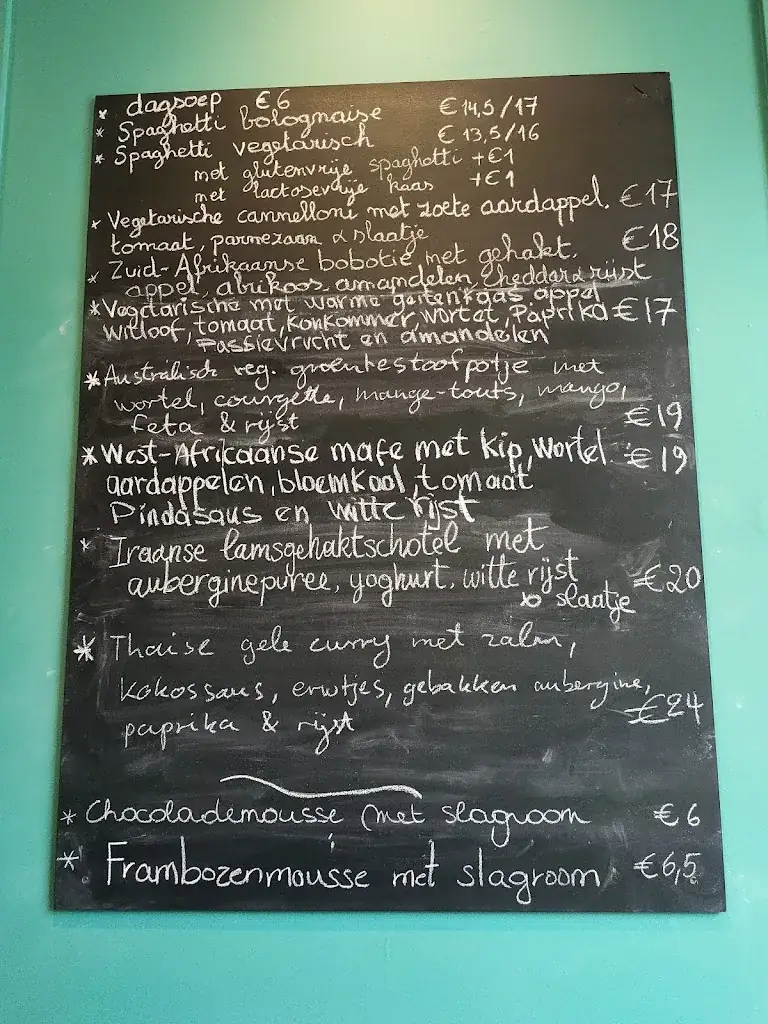 * dagsoep €6
* Spaghetti bolognaise €14,5/17
* Spaghetti vegetarisch €13,5/16
met glutenvrije spaghetti +€1
met lactosevrije kaas +€1
* Vegetarische cannelloni met zoete aardappel, €17
tomaat, parmezaan & slaatje
* Zuid-Afrikaanse bobotie met gehakt, €18
appel, abrikoos, amandelen, cheddar & rijst
* Vegetarische met warme geitenkaas, appel
witloof, tomaat, Konkommer, wortel, Paprika €17
Passievrucht en amandelen
* Australisch veg. groentestoofpotje met
wortel, courgette, mange-touts, mango,
feta & rijst €19
* West-Afrikaanse mafe met kip, wortel €19
aardappelen, bloemkool, tomaat
Pindasaus en witte rijst
* Iraanse lamsgehaktschotel met
auberginepuree, yoghurt, witte rijst €20
& slaatje
* Thaise gele curry met zalm,
kokossaus, erwtjes, gebakken aubergine,
paprika & rijst €24
* Chocolademousse met slagroom €6
* Frambozenmousse met slagroom €6,5